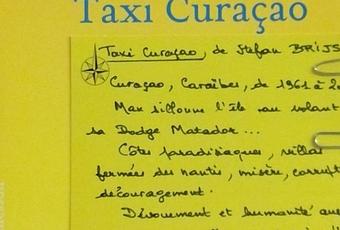 Taxi Curaçao
Taxi Curaçao, de Stefan BRIJS
Curaçao, Caraïbes, de 1961 à 20
Max sillonne l'île au volant
sa Dodge Matador...
Côtes paradisiaques, villas
fermées des nantis, misère, corrupt
découragement.
Dévouement et humanité aus